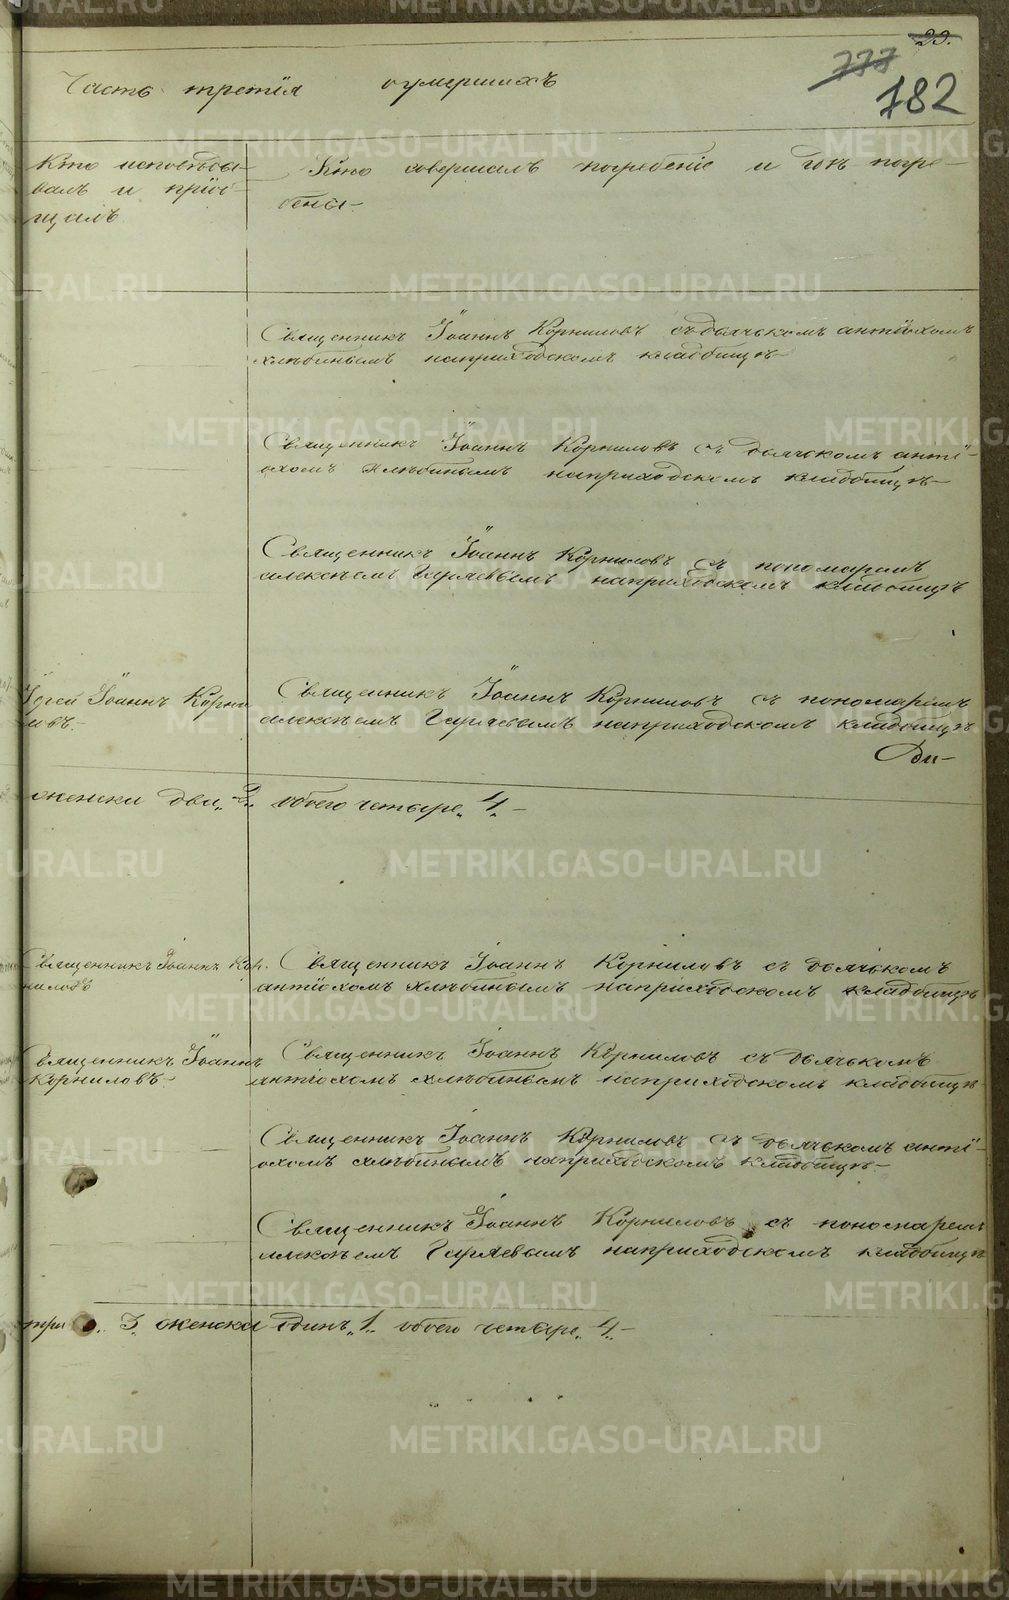 29.
777
182
Часть третія о умершихъ
Кто исповѣды-
валъ и пріоб-
щалъ
Кто совершалъ погребеніе и гдѣ погре-
бены-
Священникъ Іоаннъ Корниловъ съ дьячькомъ антіохомъ
хлѣбинымъ наприходскомъ кладбищѣ-
Священникъ Іоаннъ Корниловъ съ дьячькомъ анті-
охомъ хлѣбинымъ наприходскомъ кладбищѣ-
Священникъ Іоаннъ Корниловъ съ пономаремъ
алексѣемъ наприходскомъ кладбищѣ
Іерей Іоаннъ Корни
ивъ.-
Священникъ Іоаннъ Корниловъ съ пономаремъ
алексѣемъ наприходскомъ кладбищѣ
женска два „2„ обоего четыре „4„-
Священникъ Іоаннъ Кор.
ниловъ
Священникъ Іоаннъ Корниловъ съ дьячькомъ
антіохомъ хлѣбинымъ наприходскомъ кладбищѣ
Священникъ Іоаннъ
Корниловъ.-
Священникъ Іоаннъ Корниловъ съ дьячькомъ
антіохомъ хлѣбинымъ наприходскомъ кладбищѣ-
Священникъ Іоаннъ Корниловъ съ дьячькомъ анті-
охомъ хлѣбинымъ наприходскомъ кладбищѣ.-
Священникъ Іоаннъ Корниловъ съ пономаремъ
алексѣемъ наприходскомъ кладбищѣ
три „3„ женска одинъ „1„ обоего четыре „4„-
METRIKI.GASO-URAL.RU